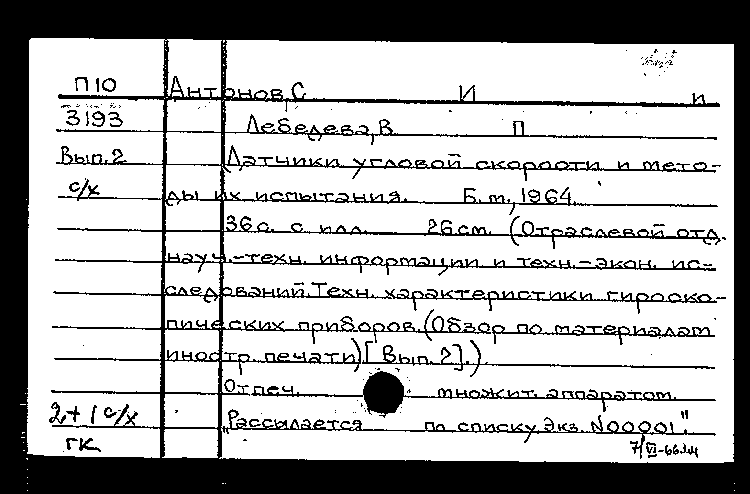 П10 Антонов, С И и
3193 Лебедева, В П
Вып. 2 Датчики угловой скорости и мето-
с/х ды их испытания. Б. м., 1964.
36 с. с илл. 26 см. (Отраслевой отд.
науч.-техн. информации и техн.-экон. ис-
следований. Техн. характеристики гироско-
пических приборов. (Обзор по материалам
иностр. печати) [Вып. 2].)
Отпеч. множит. аппаратом.
2 + 1 с/х „Рассылается по списку. Экз. N00001".
ГК 7/VI-66